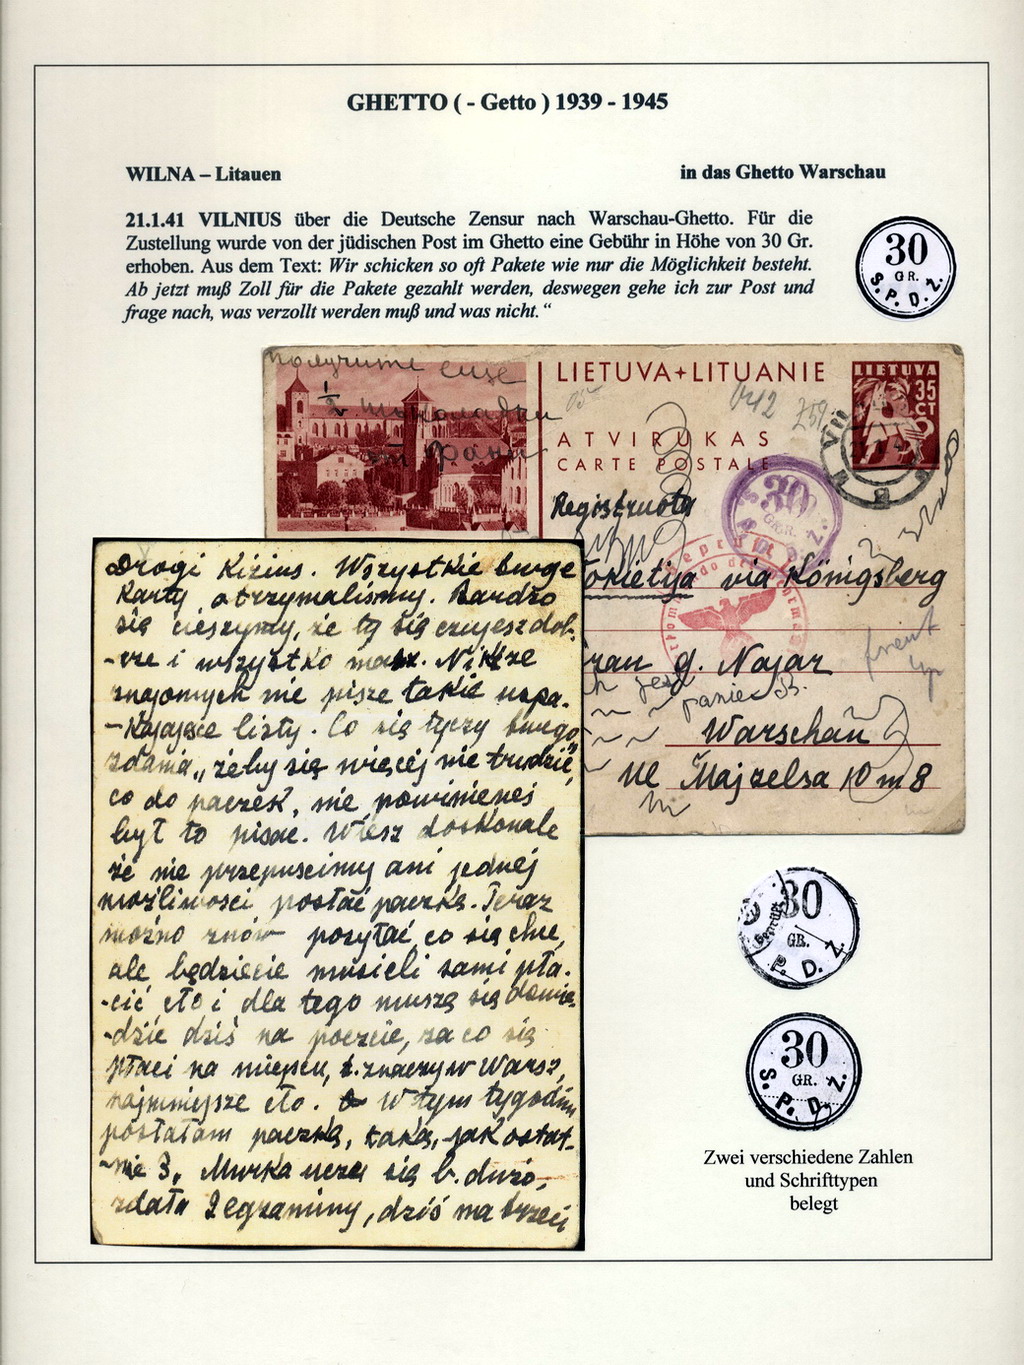 GHETTO ( - Getto ) 1939 - 1945
WILNA – Litauen
in das Ghetto Warschau
21.1.41 VILNIUS über die Deutsche Zensur nach Warschau-Ghetto. Für die
Zustellung wurde von der jüdischen Post im Ghetto eine Gebühr in Höhe von 30 Gr.
erhoben. Aus dem Text: Wir schicken so oft Pakete wie nur die Möglichkeit besteht.
Ab jetzt muß Zoll für die Pakete gezahlt werden, deswegen gehe ich zur Post und
frage nach, was verzollt werden muß und was nicht. “
30
GR.
S. P. D. Z.
еще
1/2
LIETUVA+LITUANIE
ATVIRUKAS
CARTE POSTALE
LIETUVA
35
CT
30
Registruota
via Königsberg
g. Najar
Warschau
Ul Majzelsa 10 m 8
Drogi Kizius. Wszystkie twoje
Karty otrzymaliśmy. Bardzo
się cieszymy, że ty się czujesz dob-
-rze i wszystko masz. Nikt ze
znajomych nie pisze takie uspa-
-kajające listy. Co się tyczy twego
zdania „żeby się więcej nie trudzić”
co do paczek, nie powinieneś
był to pisać. Wiesz doskonale
że nie przepuścimy ani jednej
możliwości posłać paczkę. Teraz
można znów posyłać co się chce,
ale będziecie musieli sami pła-
-cić cło i dla tego muszę się dowie-
-dzić dziś na poczcie, za co się
płaci na miejscu, t. znaczy w Warsz,
najmniejsze cło. W tym tygodniu
posłałam paczkę, taką, jak ostat-
-nie 3. Murka uczy się b. dużo,
zdała 2 egzaminy, dziś ma trzeci
30
GR.
P. D. Z.
30
GR.
S. P. D. Z.
Zwei verschiedene Zahlen
und Schrifttypen
belegt